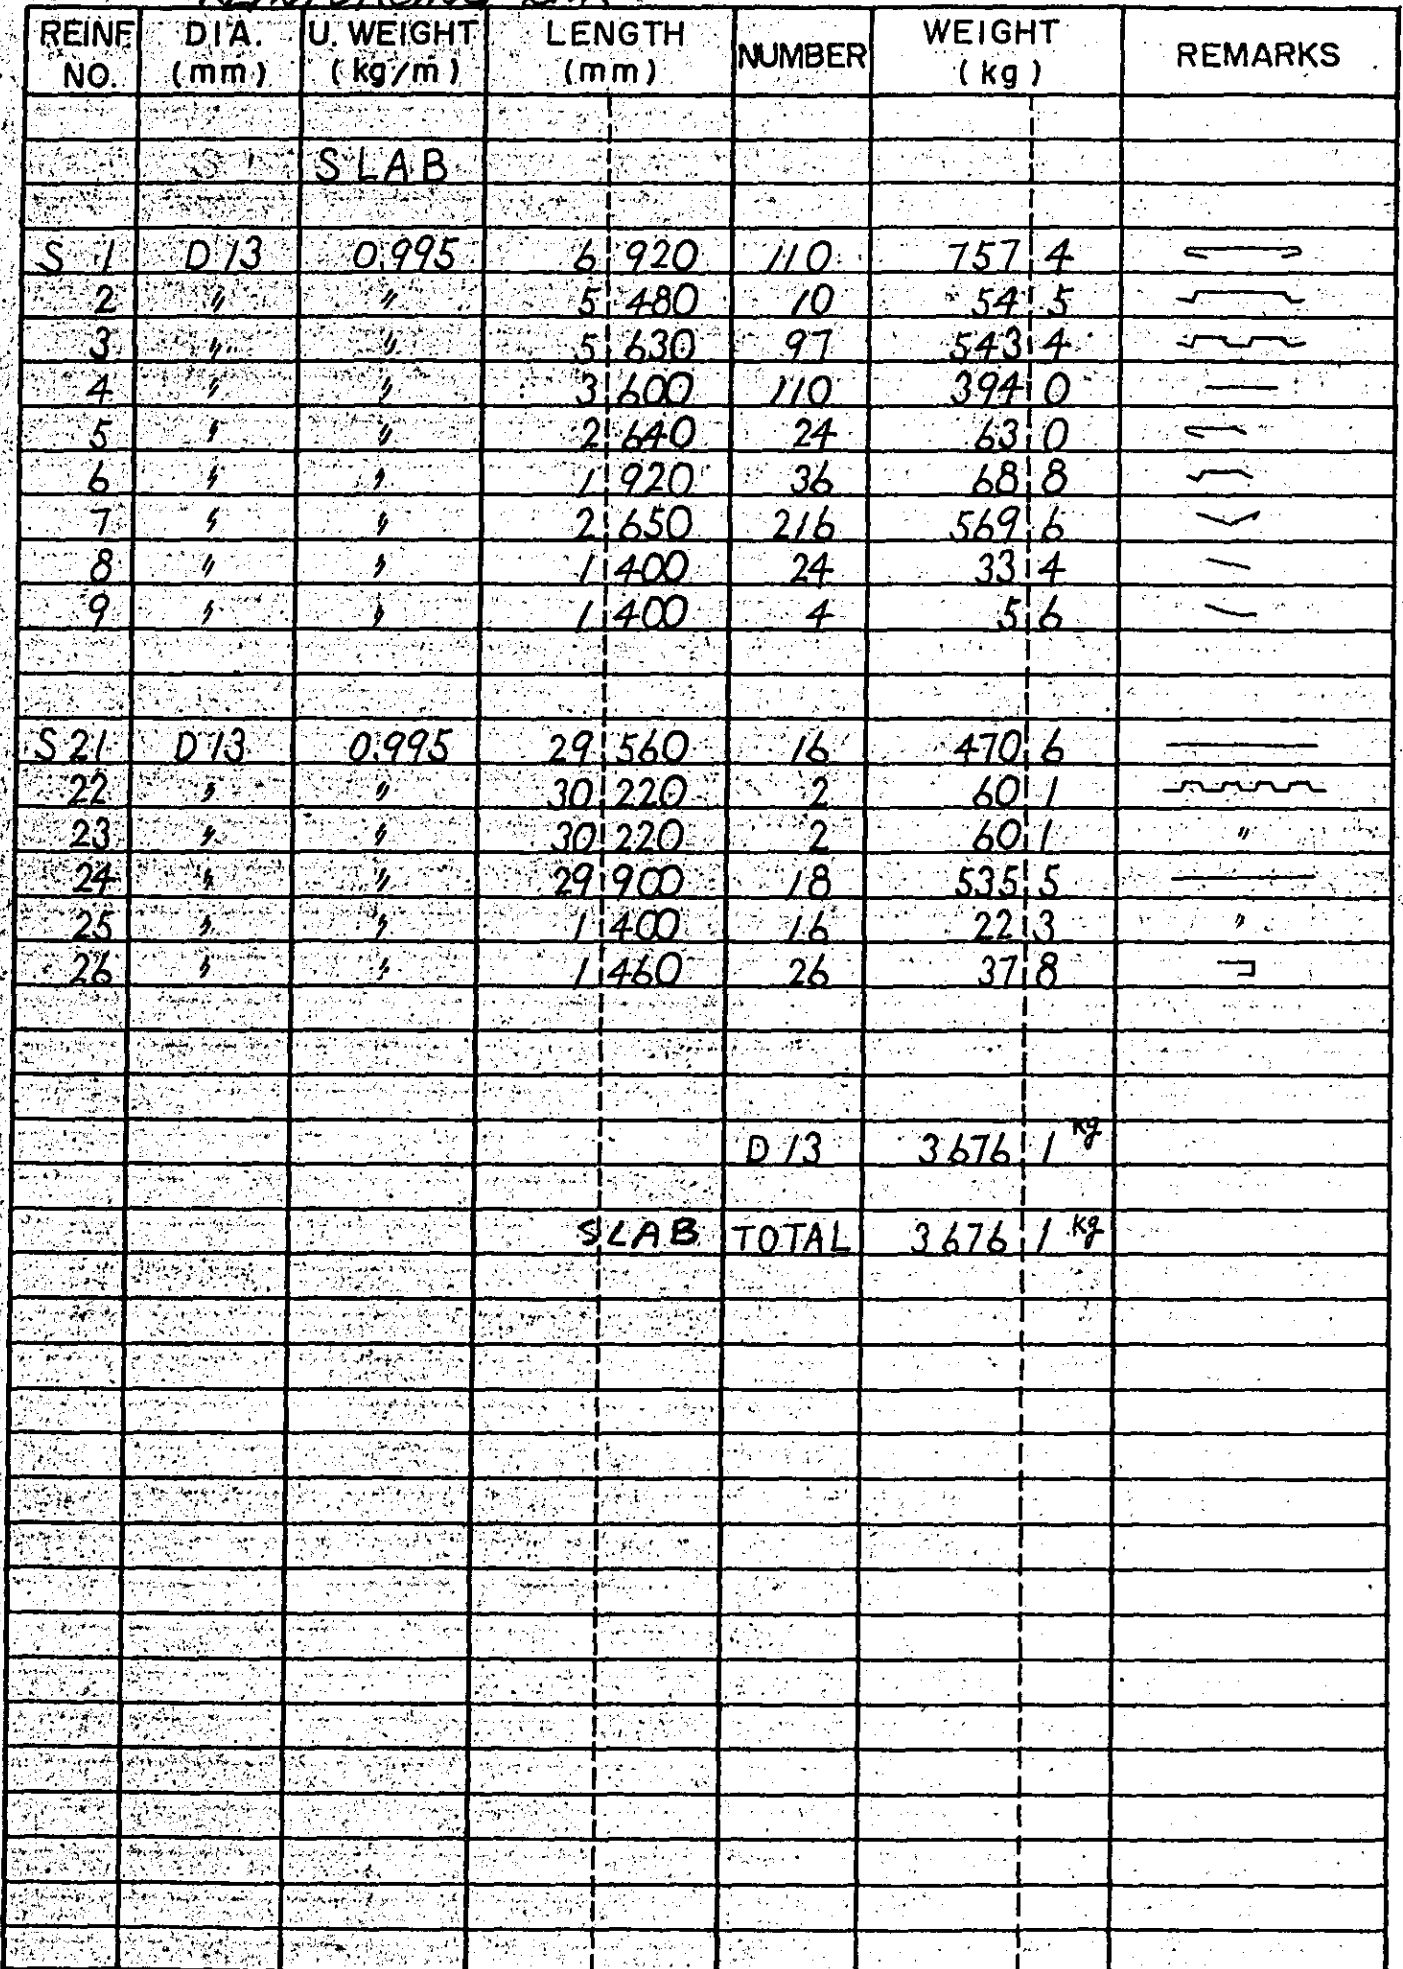 REINFORCING BAR
REINF NO. DIA. (mm) U. WEIGHT (kg/m) LENGTH (mm) NUMBER WEIGHT (kg) REMARKS
SLAB
S 1 D 13 0.995 6 920 110 757 4
2 〃 〃 5 480 10 54 5
3 〃 〃 5 630 97 543 4
4 〃 〃 3 600 110 394 0
5 〃 〃 2 640 24 63 0
6 〃 〃 1 920 36 68 8
7 〃 〃 2 650 216 569 6
8 〃 〃 1 400 24 33 4
9 〃 〃 1 400 4 5 6
S 21 D 13 0.995 29 560 16 470 6
22 〃 〃 30 220 2 60 1
23 〃 〃 30 220 2 60 1 〃
24 〃 〃 29 900 18 535 5
25 〃 〃 1 400 16 22 3 〃
26 〃 〃 1 460 26 37 8
D 13 3 676 1 kg
SLAB TOTAL 3 676 1 kg